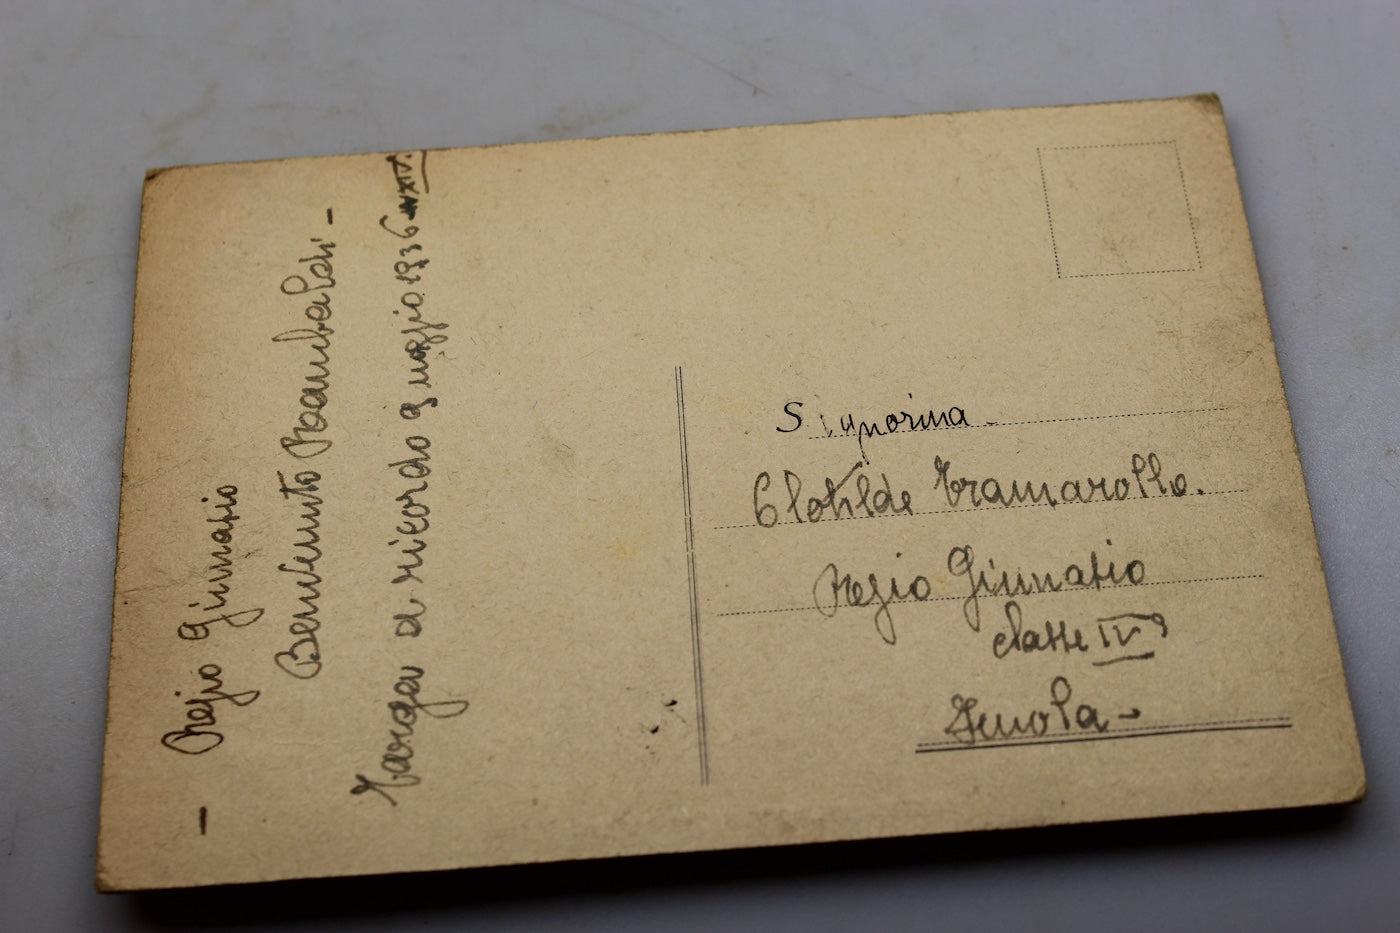 - Regio Ginnasio
Benvenuto Rambaldi -
Targa a ricordo 9 maggio 1936 XIV.
Signorina
Clotilde Tramarollo.
Regio Ginnasio
classe IVª
Imola -